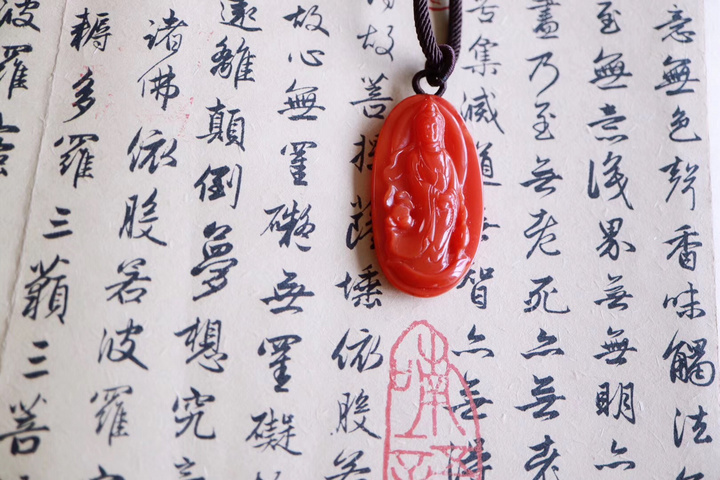 意無色聲香味觸法
至無意識界无無明亦
盡乃至无老死亦无老
苦集滅道无智亦无得
故菩提薩埵依般若
故心無罣礙無罣礙
遠離顛倒夢想究
諸佛依般若波羅
耨多羅三藐三菩
波羅